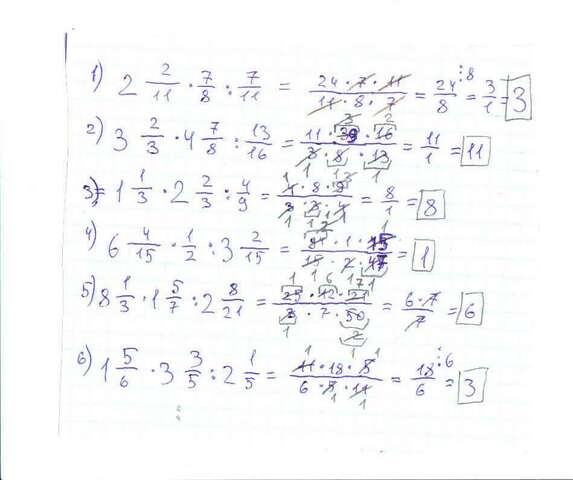 1) 2 2/11 · 7/8 : 7/11 = 24 · 7 · 11 / 11 · 8 · 7 = 24/8 :8 = 3/1 = 3
2) 3 2/3 · 4 7/8 : 13/16 = 11 · 39 · 16 / 3 · 8 · 13 = 11/1 = 11
3) 1 1/3 · 2 2/3 : 4/9 = 4 · 8 · 9 / 3 · 3 · 4 = 8/1 = 8
4) 6 4/15 · 1/2 : 3 2/15 = 1 · 15 / 15 · 2 · 47 = 1
5) 8 1/3 · 1 5/7 : 2 8/21 = 25 · 12 · 21 / 3 · 7 · 50 = 6 · 7 / 7 = 6
6) 1 5/6 · 3 3/5 : 2 1/5 = 11 · 18 · 5 / 6 · 5 · 11 = 18/6 :6 = 3